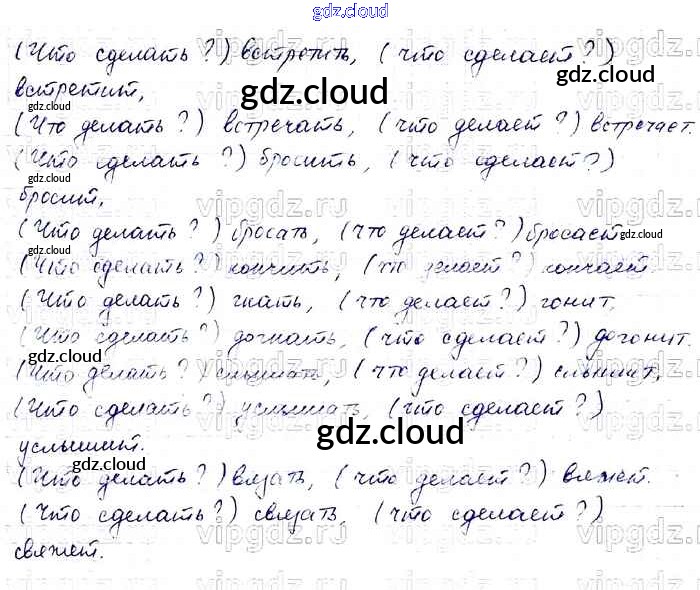 gdz.cloud
(Что сделать?) встретить, (что сделает?)
встретит,
(Что делать?) встречать, (что делает?) встречает.
(Что сделать?) бросить, (что сделает?)
бросит,
(Что делать?) бросать, (что делает?) бросает
(Что сделать?) кончить, (что делает?) кончает.
(Что делать?) гнать, (что делает?) гонит,
(Что сделать?) догнать, (что сделает?) догонит.
(Что делать?) слышать, (что делает?) слышит,
(Что сделать?) услышать, (что сделает?)
услышит.
(Что делать?) вязать, (что делает?) вяжет.
(Что сделать?) связать, (что сделает?)
свяжет.